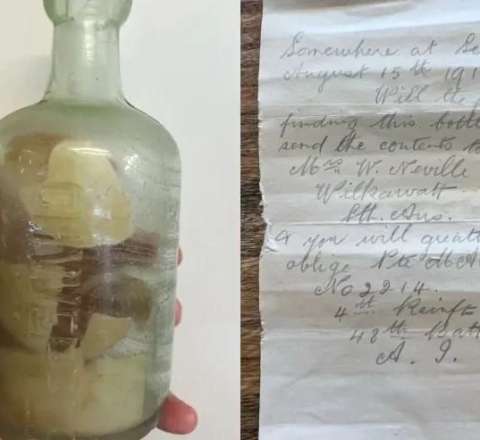 Somewhere at Se
August 15th 191
Will
finding this bottl
send the contents t
Mrs W. Neville
Wilkawatt
Sth. Aus.
& you will greatl
oblige Pte M A
No 2214.
4th Reinft
48th Batt
A. I.